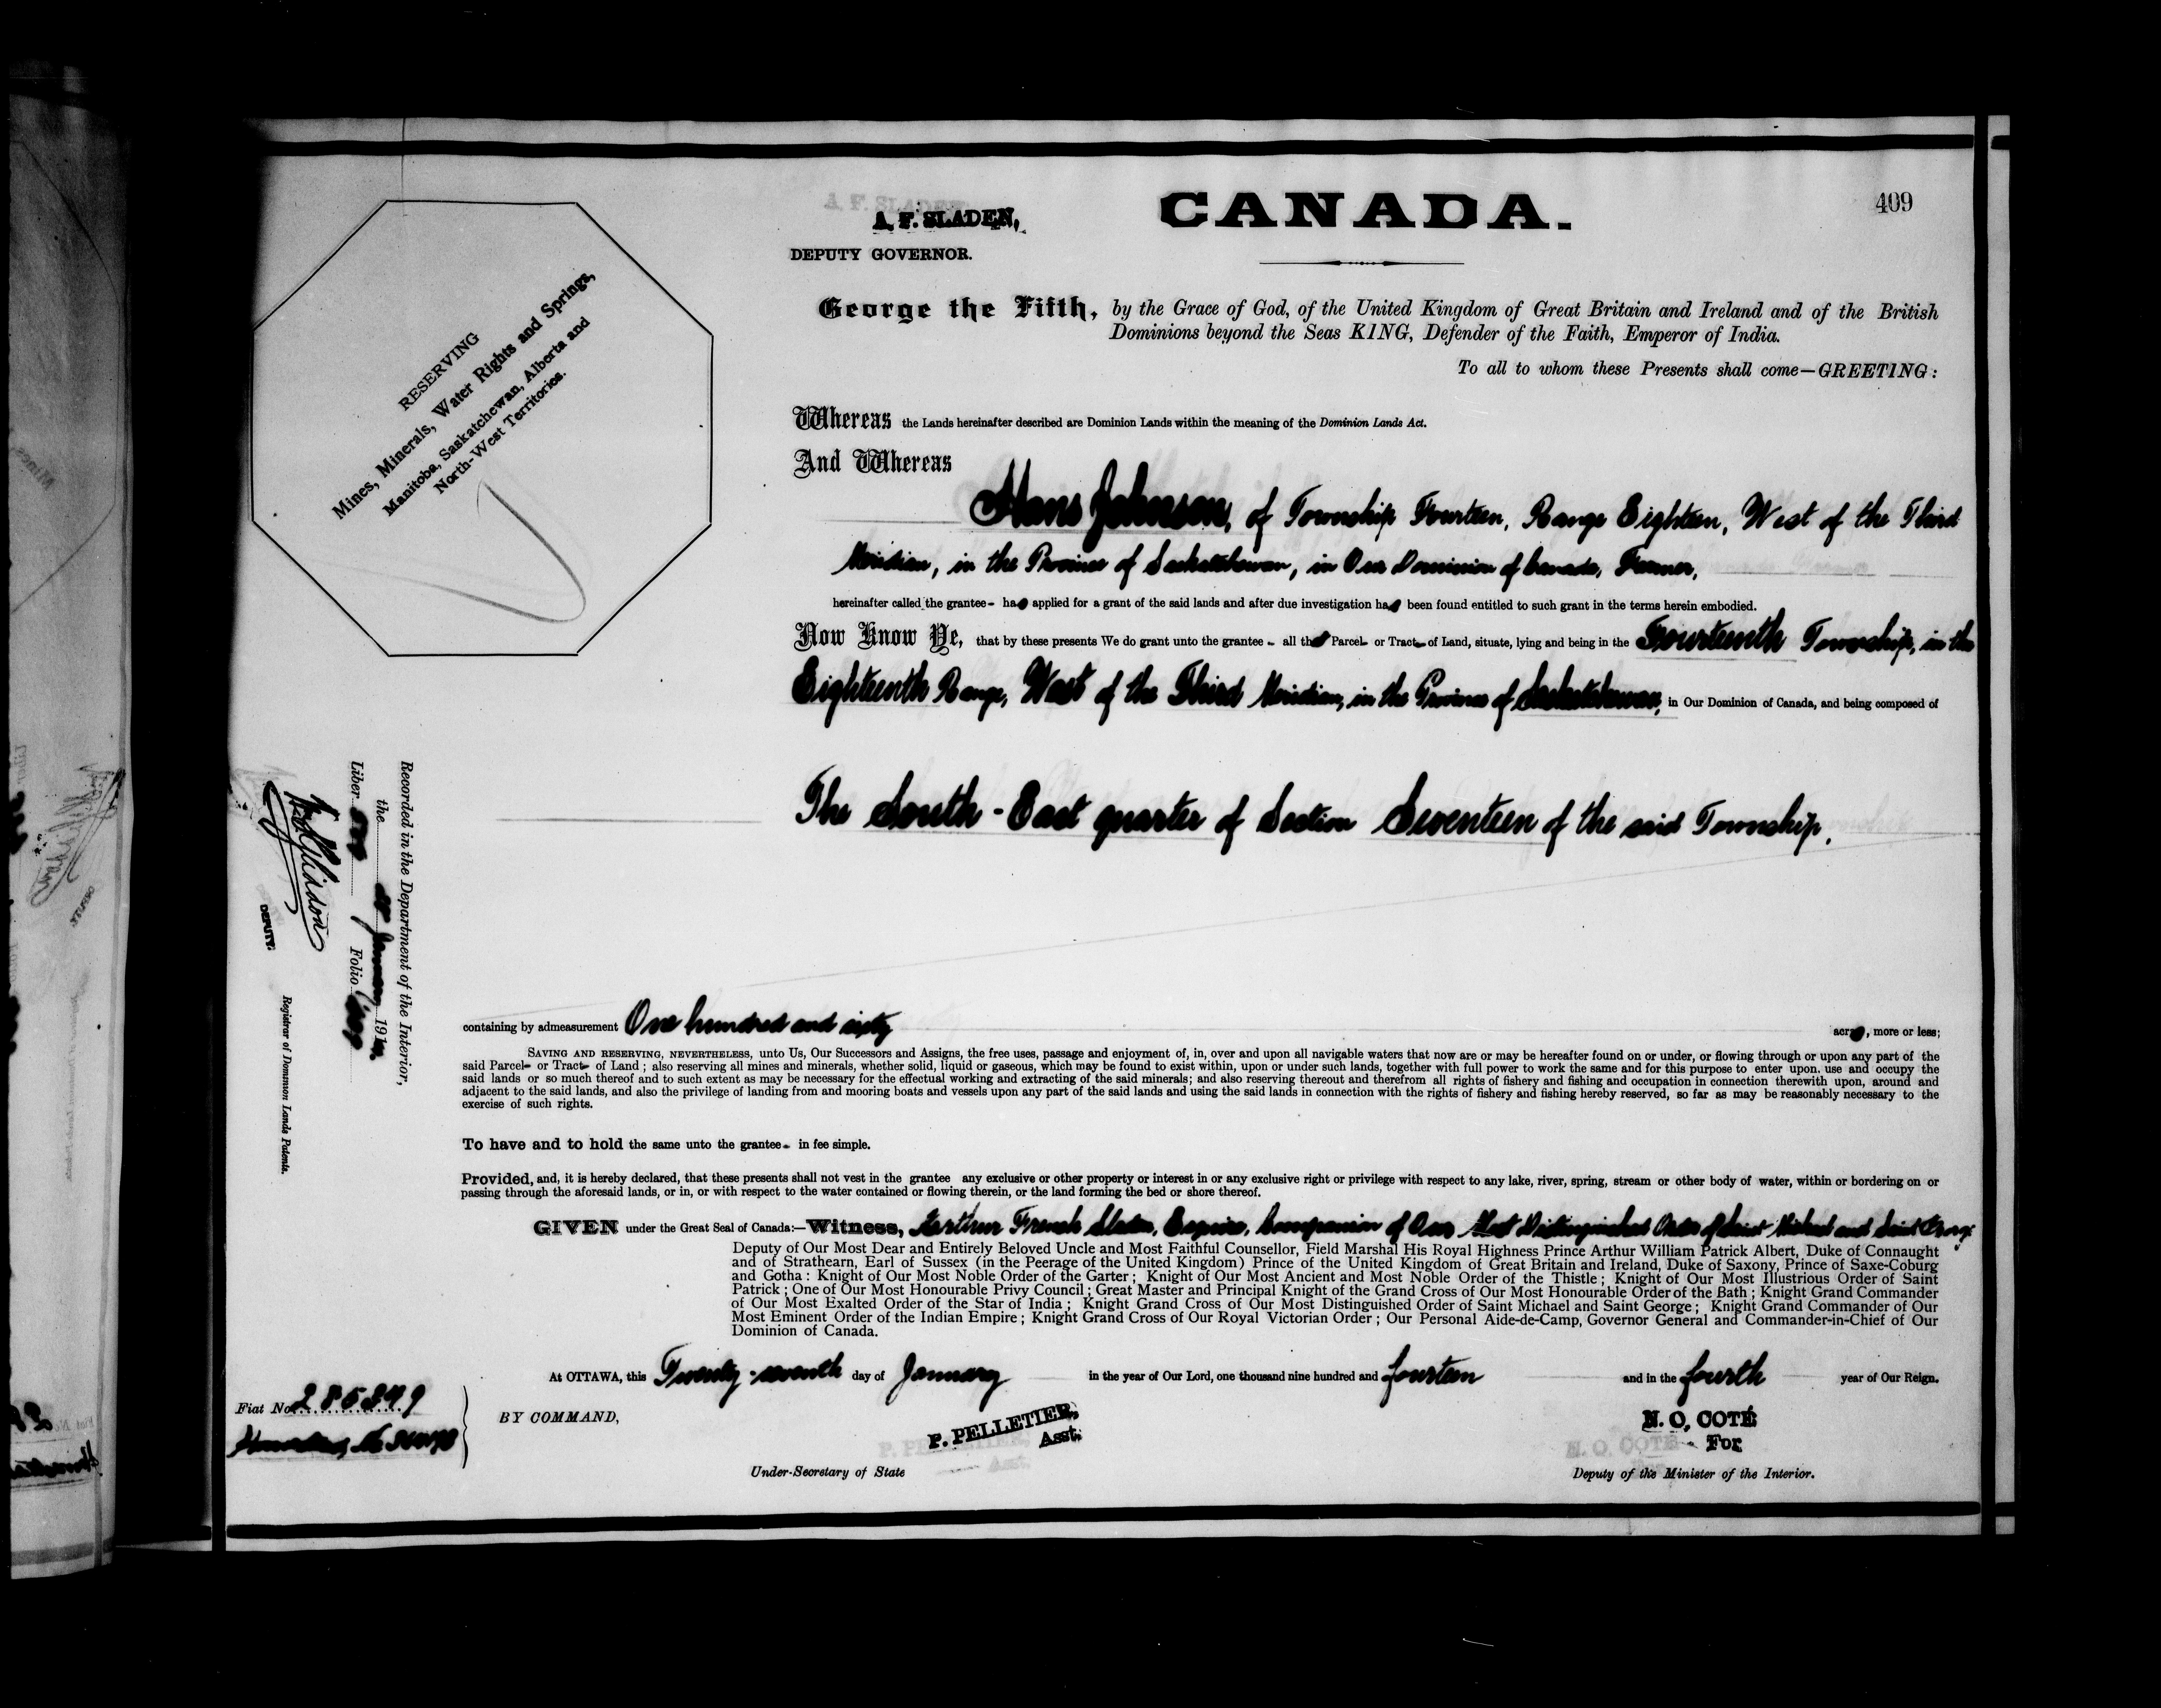 409
A. F. SLADEN,
DEPUTY GOVERNOR.
CANADA.
RESERVING
Mines, Minerals, Water Rights and Springs,
Manitoba, Saskatchewan, Alberta and
North-West Territories.
George the Fifth, by the Grace of God, of the United Kingdom of Great Britain and Ireland and of the British
Dominions beyond the Seas KING, Defender of the Faith, Emperor of India.
To all to whom these Presents shall come—GREETING:
Whereas the Lands hereinafter described are Dominion Lands within the meaning of the Dominion Lands Act.
And Whereas
Hans Johnson, of Township Fourteen, Range Eighteen, West of the Third
Meridian, in the Province of Saskatchewan, in Our Dominion of Canada, Farmer,
hereinafter called the grantee- has applied for a grant of the said lands and after due investigation has been found entitled to such grant in the terms herein embodied.
Now Know Ye, that by these presents We do grant unto the grantee - all that Parcel- or Tract- of Land, situate, lying and being in the Fourteenth Township, in the
Eighteenth Range, West of the Third Meridian, in the Province of Saskatchewan, in Our Dominion of Canada, and being composed of
The South-East quarter of Section Seventeen of the said Township.
Recorded in the Department of the Interior,
the January 191
Liber Folio 409
DEPUTY.
Registrar of Dominion Lands Patents.
containing by admeasurement One hundred and sixty acres, more or less;
SAVING AND RESERVING, NEVERTHELESS, unto Us, Our Successors and Assigns, the free uses, passage and enjoyment of, in, over and upon all navigable waters that now are or may be hereafter found on or under, or flowing through or upon any part of the
said Parcel- or Tract- of Land; also reserving all mines and minerals, whether solid, liquid or gaseous, which may be found to exist within, upon or under such lands, together with full power to work the same and for this purpose to enter upon. use and occupy the
said lands or so much thereof and to such extent as may be necessary for the effectual working and extracting of the said minerals; and also reserving thereout and therefrom all rights of fishery and fishing and occupation in connection therewith upon, around and
adjacent to the said lands, and also the privilege of landing from and mooring boats and vessels upon any part of the said lands and using the said lands in connection with the rights of fishery and fishing hereby reserved, so far as may be reasonably necessary to the
exercise of such rights.
To have and to hold the same unto the grantee- in fee simple.
Provided, and, it is hereby declared, that these presents shall not vest in the grantee any exclusive or other property or interest in or any exclusive right or privilege with respect to any lake, river, spring, stream or other body of water, within or bordering on or
passing through the aforesaid lands, or in, or with respect to the water contained or flowing therein, or the land forming the bed or shore thereof.
GIVEN under the Great Seal of Canada:—Witness, Arthur French Sladen, Esquire, Companion of Our Most Distinguished Order of Saint Michael and Saint George
Deputy of Our Most Dear and Entirely Beloved Uncle and Most Faithful Counsellor, Field Marshal His Royal Highness Prince Arthur William Patrick Albert, Duke of Connaught
and of Strathearn, Earl of Sussex (in the Peerage of the United Kingdom) Prince of the United Kingdom of Great Britain and Ireland, Duke of Saxony, Prince of Saxe-Coburg
and Gotha: Knight of Our Most Noble Order of the Garter; Knight of Our Most Ancient and Most Noble Order of the Thistle; Knight of Our Most Illustrious Order of Saint
Patrick; One of Our Most Honourable Privy Council; Great Master and Principal Knight of the Grand Cross of Our Most Honourable Order of the Bath; Knight Grand Commander
of Our Most Exalted Order of the Star of India; Knight Grand Cross of Our Most Distinguished Order of Saint Michael and Saint George; Knight Grand Commander of Our
Most Eminent Order of the Indian Empire; Knight Grand Cross of Our Royal Victorian Order; Our Personal Aide-de-Camp, Governor General and Commander-in-Chief of Our
Dominion of Canada.
At OTTAWA, this Twenty-seventh day of January in the year of Our Lord, one thousand nine hundred and fourteen and in the fourth year of Our Reign.
Fiat No. 285349
BY COMMAND,
P. PELLETIER,
Asst.
Under-Secretary of State
N. O. COTÉ
For
Deputy of the Minister of the Interior.